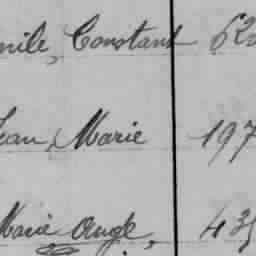 mile, Constant 62
Jean, Marie 197
Marie Ange, 435